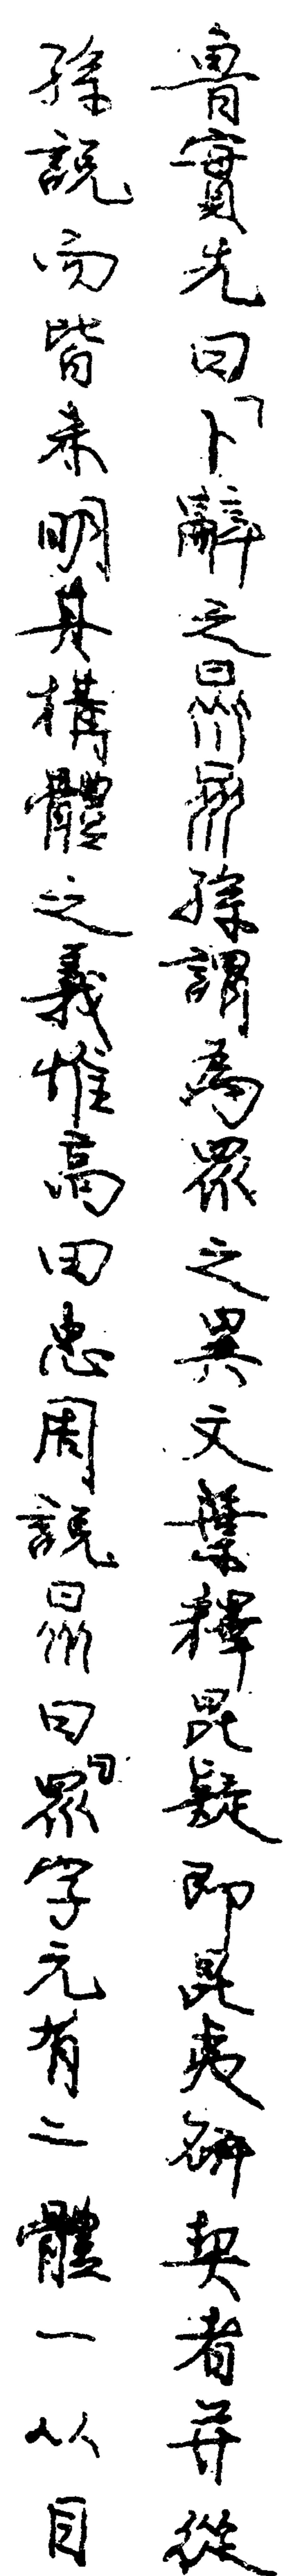 魯實先曰「卜辭之孫謂為眾之異文葉釋昆疑即昆夷研契者并從
孫說而皆未明其構體之義惟高田忠周說曰『眾字元有二體一从目